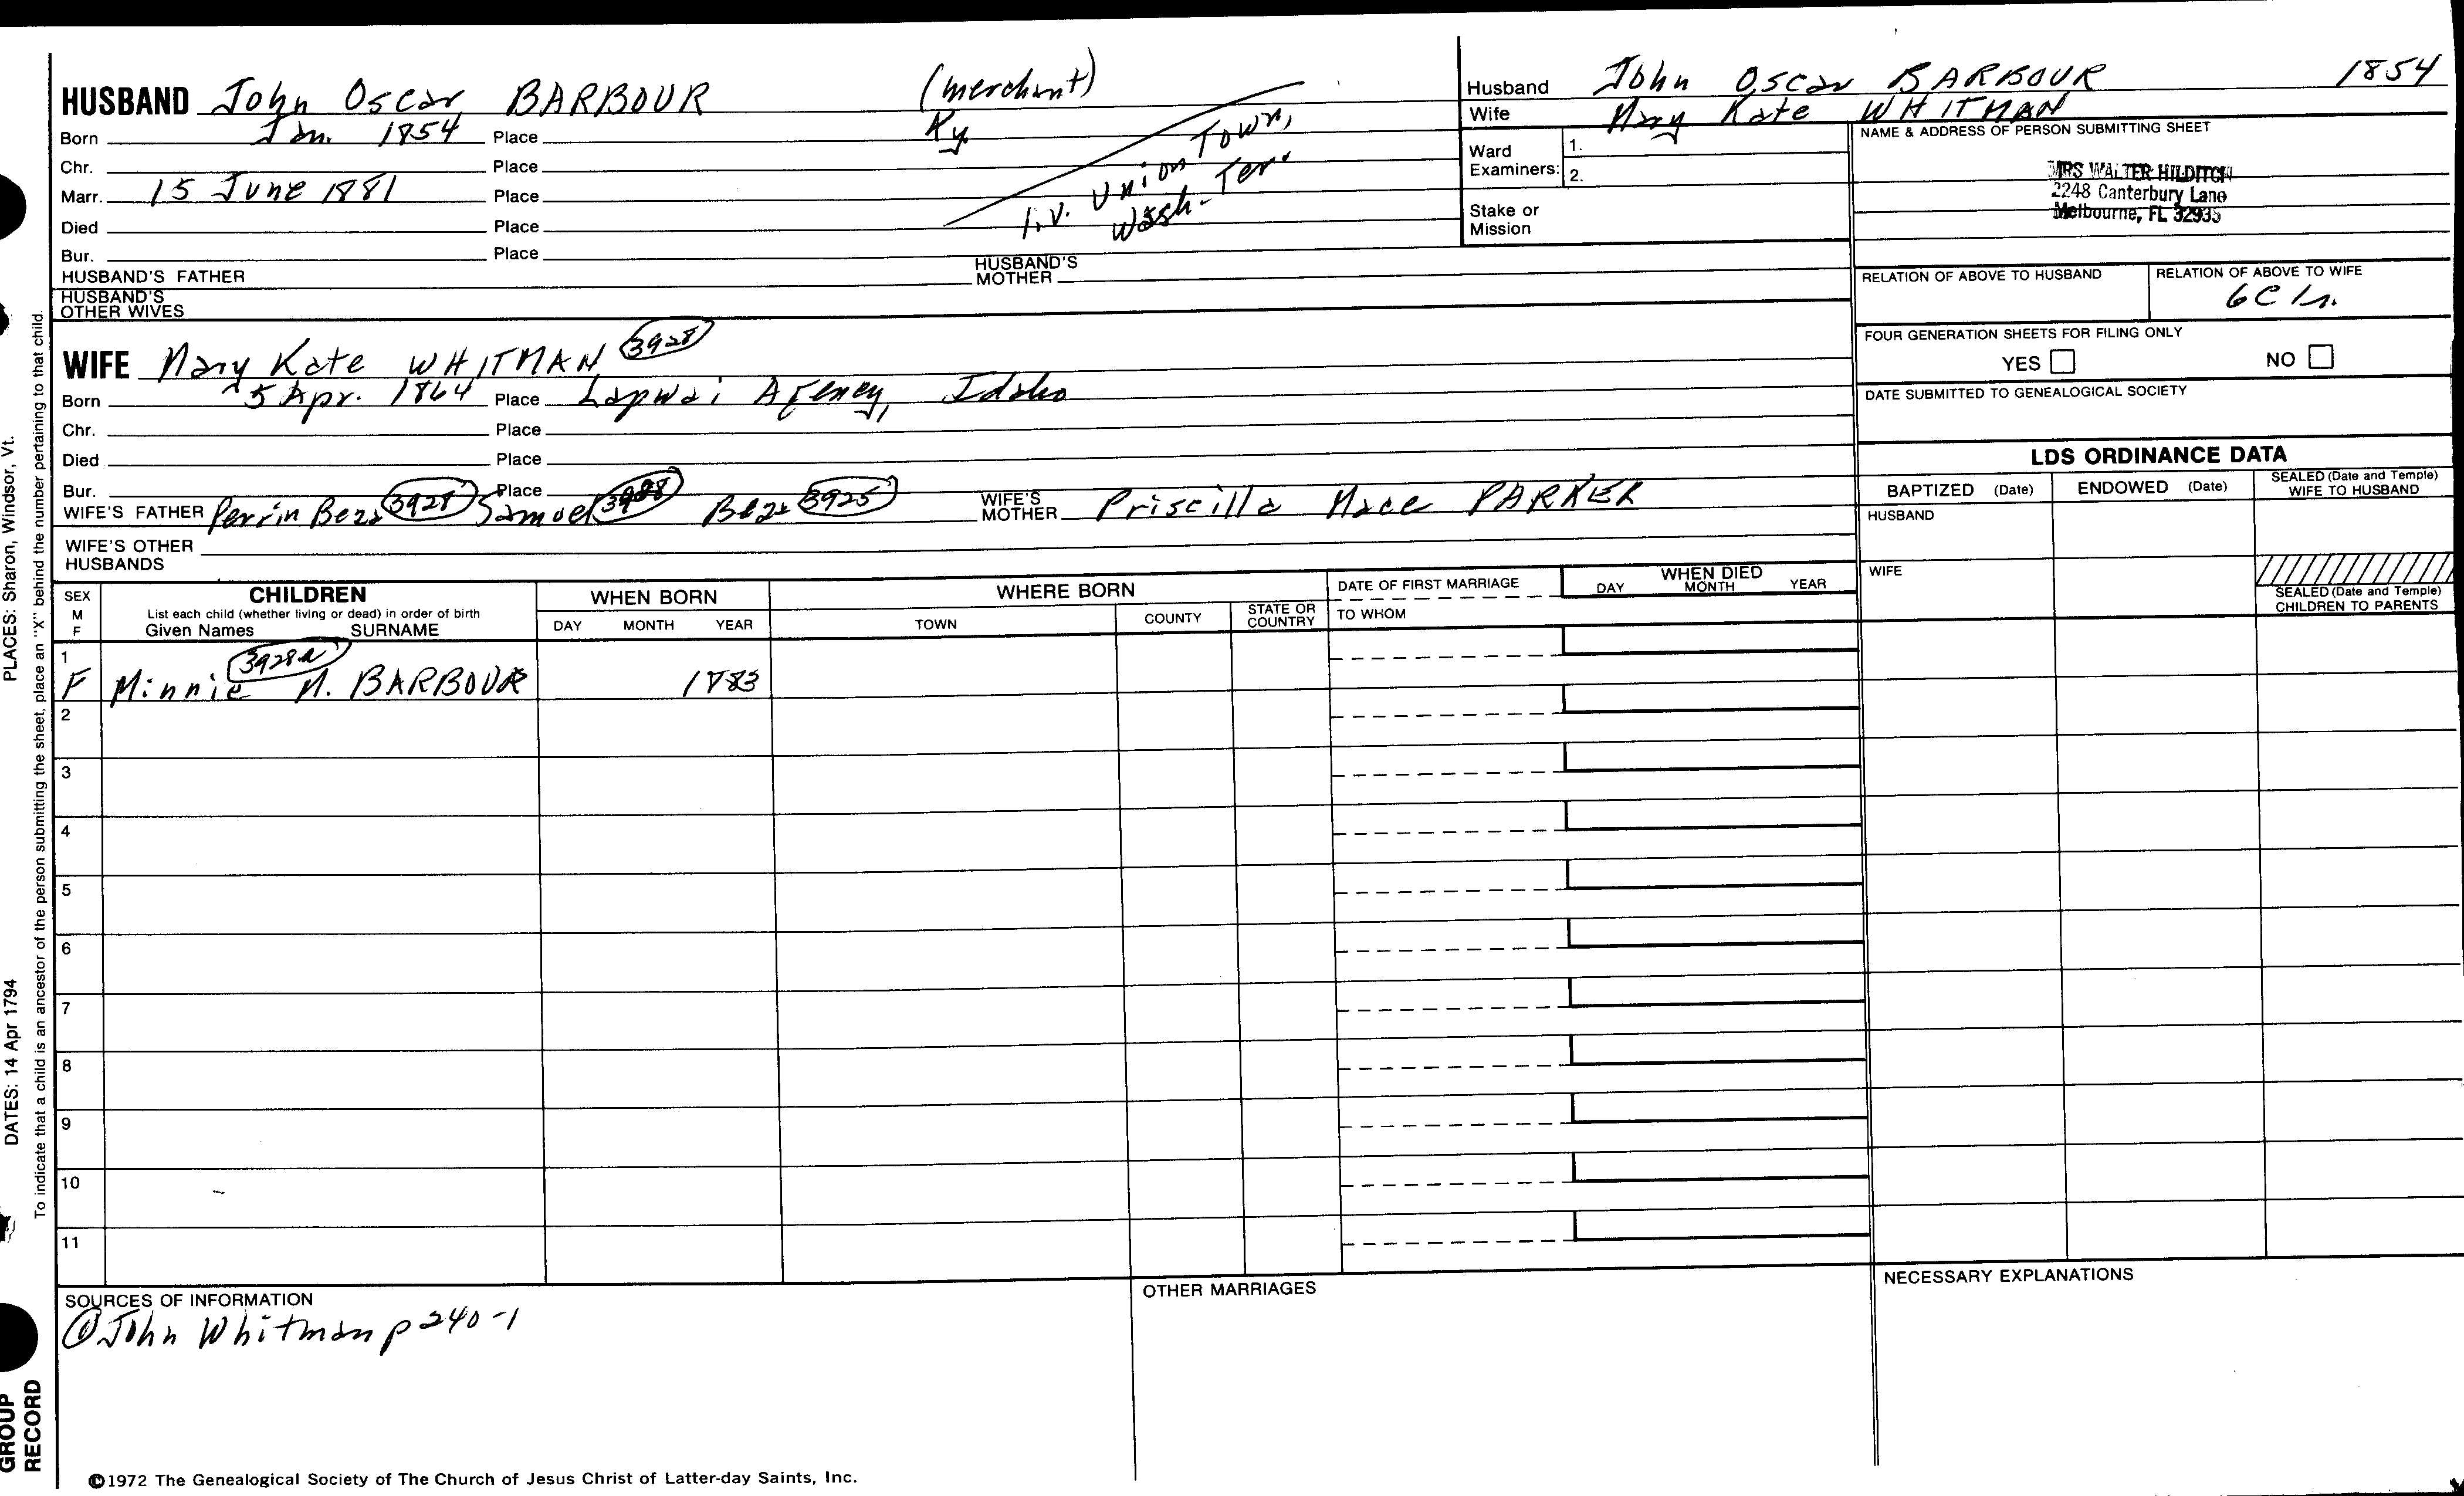 HUSBAND John Oscar BARBOUR (merchant)
Born Jan. 1854 Place Ky.
Chr. Place
Marr. 15 June 1881 Place
Died Place
Bur. Place
liv. Union Town,
Wash. Ter.
HUSBAND'S FATHER HUSBAND'S MOTHER
HUSBAND'S OTHER WIVES
Husband John Oscar BARBOUR 1854
Wife Mary Kate WHITMAN
Ward Examiners: 1.
2.
Stake or Mission
NAME & ADDRESS OF PERSON SUBMITTING SHEET
MRS WALTER HILDITCH
2248 Canterbury Lane
Melbourne, FL 32935
RELATION OF ABOVE TO HUSBAND RELATION OF ABOVE TO WIFE
6C 1r.
FOUR GENERATION SHEETS FOR FILING ONLY
YES NO
DATE SUBMITTED TO GENEALOGICAL SOCIETY
WIFE Mary Kate WHITMAN 3928
Born 5 Apr. 1864 Place Lapwai Agency, Idaho
Chr. Place
Died Place
Bur. Place
WIFE'S FATHER Perrin Beza Samuel Beza 3925 WIFE'S MOTHER Priscilla Mace PARKER
WIFE'S OTHER HUSBANDS
LDS ORDINANCE DATA
BAPTIZED (Date) ENDOWED (Date) SEALED (Date and Temple) WIFE TO HUSBAND
HUSBAND
WIFE
SEALED (Date and Temple) CHILDREN TO PARENTS
SEX M F
CHILDREN
List each child (whether living or dead) in order of birth
Given Names SURNAME
WHEN BORN
DAY MONTH YEAR
WHERE BORN
TOWN COUNTY STATE OR COUNTRY
DATE OF FIRST MARRIAGE
TO WHOM
WHEN DIED
DAY MONTH YEAR
1
3928a
F Minnie M. BARBOUR 1883
2
3
4
5
6
7
8
9
10
11
SOURCES OF INFORMATION
① John Whitman p 240-1
OTHER MARRIAGES
NECESSARY EXPLANATIONS
©1972 The Genealogical Society of The Church of Jesus Christ of Latter-day Saints, Inc.
PLACES: Sharon, Windsor, Vt.
DATES: 14 Apr 1794
To indicate that a child is an ancestor of the person submitting the sheet, place an "X" behind the number pertaining to that child.
GROUP
RECORD